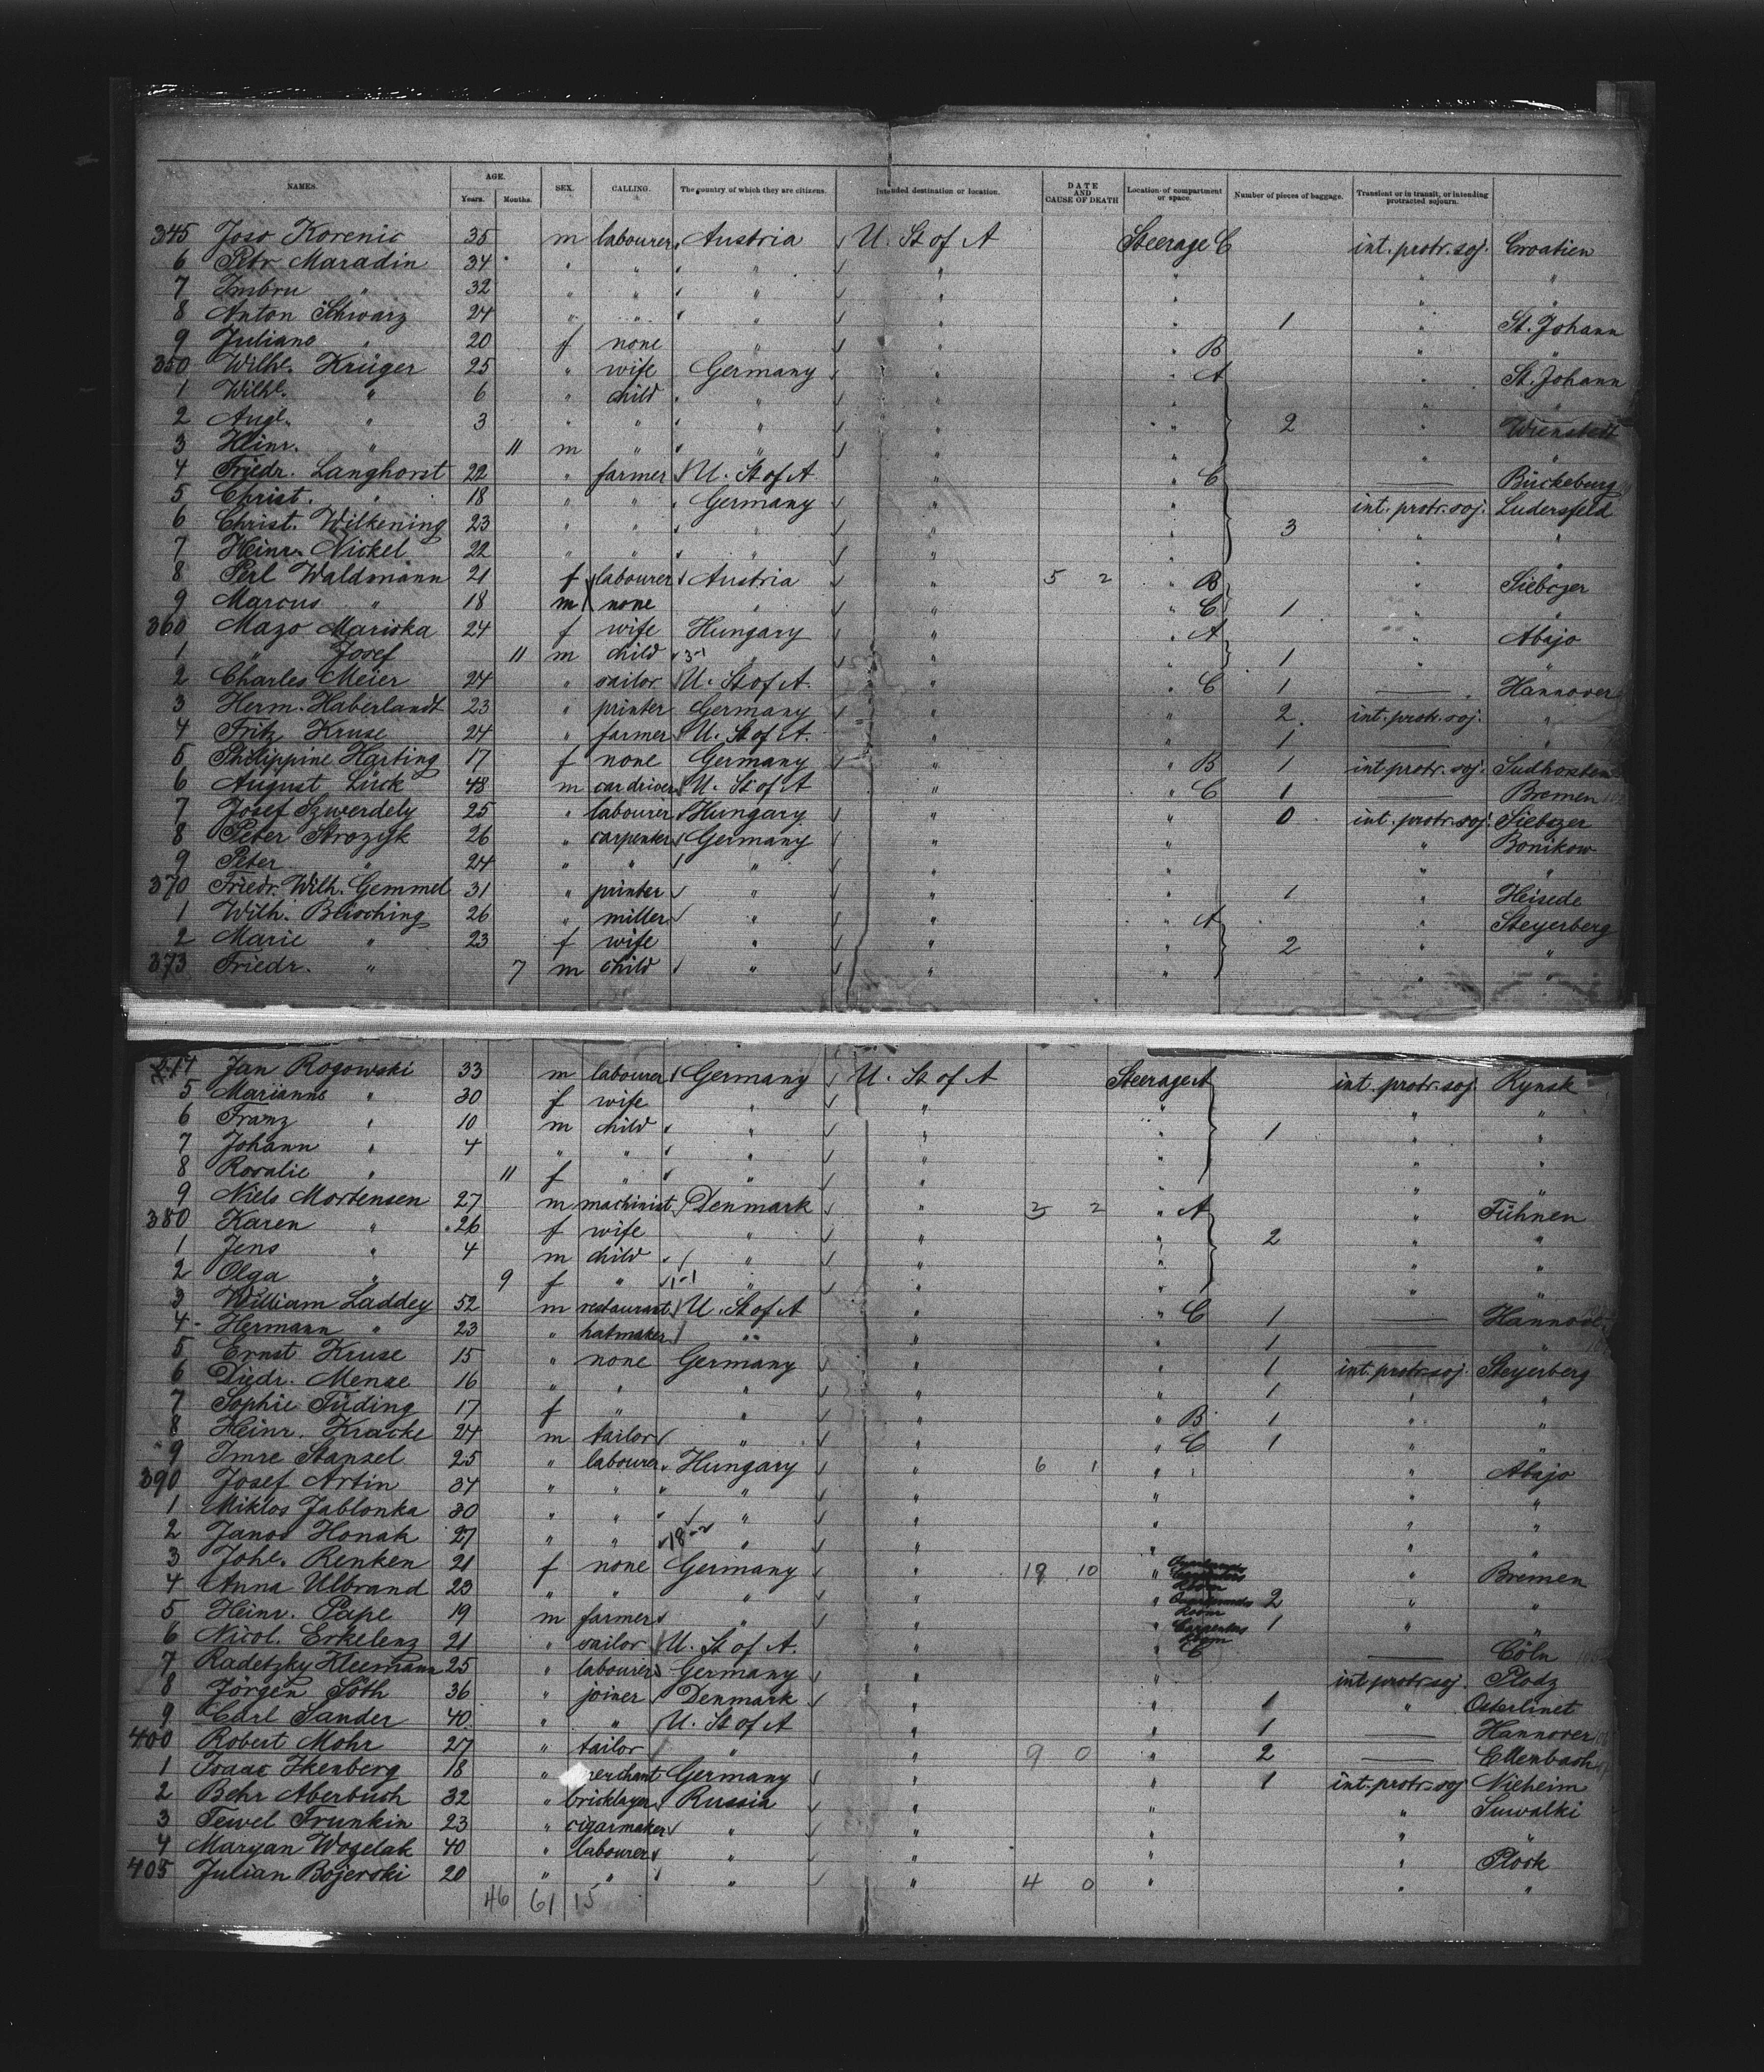 NAMES. AGE. SEX. CALLING. The country of which they are citizens. Intended destination or location. DATE AND CAUSE OF DEATH Location of compartment or space. Number of pieces of baggage. Transient or in transit, or intending protracted sojourn.
Years. Months.
345 Joso Korenic 35 m labourer Austria U. St of A Steerage C int. protr. soj. Croatien
6 Petr Maradin 34 " " " " " " "
7 Imbru " 32 " " " " " " "
8 Anton Schwarz 24 " " " " " 1 " St. Johann
9 Juliano " 20 f none " " " B " "
350 Wilhe. Krüger 25 " wife Germany " " A " St. Johann
1 Wilhe. " 6 " child " " " " "
2 Auge. " 3 " " " " " 2 "
3 Heinr. " 11 m " " " " "
4 Friedr. Langhorst 22 " farmer U. St of A " " C — Bückeburg
5 Christ. " 18 " " Germany " " int. protr. soj. Ludersfeld
6 Christ. Wilkening 23 " " " " " 3 " "
7 Heinr. Nickel 22 " " " " " " "
8 Perl Waldmann 21 f labourer Austria " 5 2 " B " Siebozer
9 Marcus " 18 m none " " " C 1 " "
360 Mazo Mariska 24 f wife Hungary " " A " Abajo
1 " Josef 11 m child 3-1 " " " 1 " "
2 Charles Meier 24 " sailor U. St of A. " " C 1 — Hannover
3 Herm. Haberlandt 23 " printer Germany " " 2 int. protr. soj. "
4 Fritz Kruse 24 " farmer U. St of A. " " 1 — "
5 Philippine Harting 17 f none Germany " " B 1 int. protr. soj. Sudhorsten
6 August Lück 48 m car driver U. St of A " " C 1 — Bremen
7 Josef Szwerdely 25 " labourer Hungary " " 0 int. protr. soj. Siebozer
8 Peter Strozyk 26 " carpenter Germany " " " Bonikow
9 Peter " 24 " " " " " " "
370 Friedr. Wilh. Gemmel 31 " printer " " " 1 " Heisede
1 Wilh. Brüsching 26 " miller " " " A " Steyerberg
2 Marie " 23 f wife " " " 2 " "
373 Friedr. " 7 m child " " " " "
374 Jan Rogowski 33 m labourer Germany U. St of A Steerage A int. protr. soj. Rynsk
5 Marianne " 30 f wife " " " " "
6 Franz " 10 m child " " " 1 " "
7 Johann " 4 " " " " " " "
8 Rosalie " 11 f " " " " " "
9 Niels Mortensen 27 m machinist Denmark " 2 " A " Fühnen
380 Karen " 26 f wife " " " 2 " "
1 Jens " 4 m child " " " " "
2 Olga " 9 f " 1-1 " " " " "
3 William Laddey 52 m restaurant U. St of A " " C 1 — Hannover
4 Hermann " 23 " hatmaker " " " 1 — "
5 Ernst Kruse 15 " none Germany " " 1 int. protr. soj. Steyerberg
6 Diedr. Menze 16 " " " " " 1 " "
7 Sophie Tüding 17 f " " " " B 1 " "
8 Heinr. Kracke 24 m tailor " " " C 1 " "
9 Imre Stanzel 25 " labourer Hungary " 6 1 " " Abajo
390 Josef Artin 34 " " " " " " "
1 Miklos Jablonka 30 " " " " " " "
2 Janos Honak 27 " " 18-2 " " " " "
3 Johe. Renken 21 f none Germany " 19 10 " " Bremen
4 Anna Ulbrand 23 " " " " " Room 2 " "
5 Heinr. Pape 19 m farmer " " " Carpenters Room 1 " "
6 Nicol. Erkelenz 21 " sailor U. St of A. " " C — Cöln
7 Radetzky Kleemann 25 " labourer Germany " " int. protr. soj. Plodz
8 Jörgen Söth 36 " joiner Denmark " " 1 " Osterlinet
9 Carl Sander 40 " " U. St of A " " 1 — Hannover
400 Robert Mohr 27 " tailor " " 9 0 " 2 — Ellenbach
1 Isaac Ikenberg 18 " merchant Germany " " 1 int. protr. soj Nieheim
2 Behr Aberbuch 32 " bricklayer Russia " " " Suwalki
3 Tewel Trunkin 23 " cigarmaker " " " " "
4 Maryan Wozelak 40 " labourer " " " " Plock
405 Julian Bojerski 20 " " " " 4 0 " " "
46 61 15